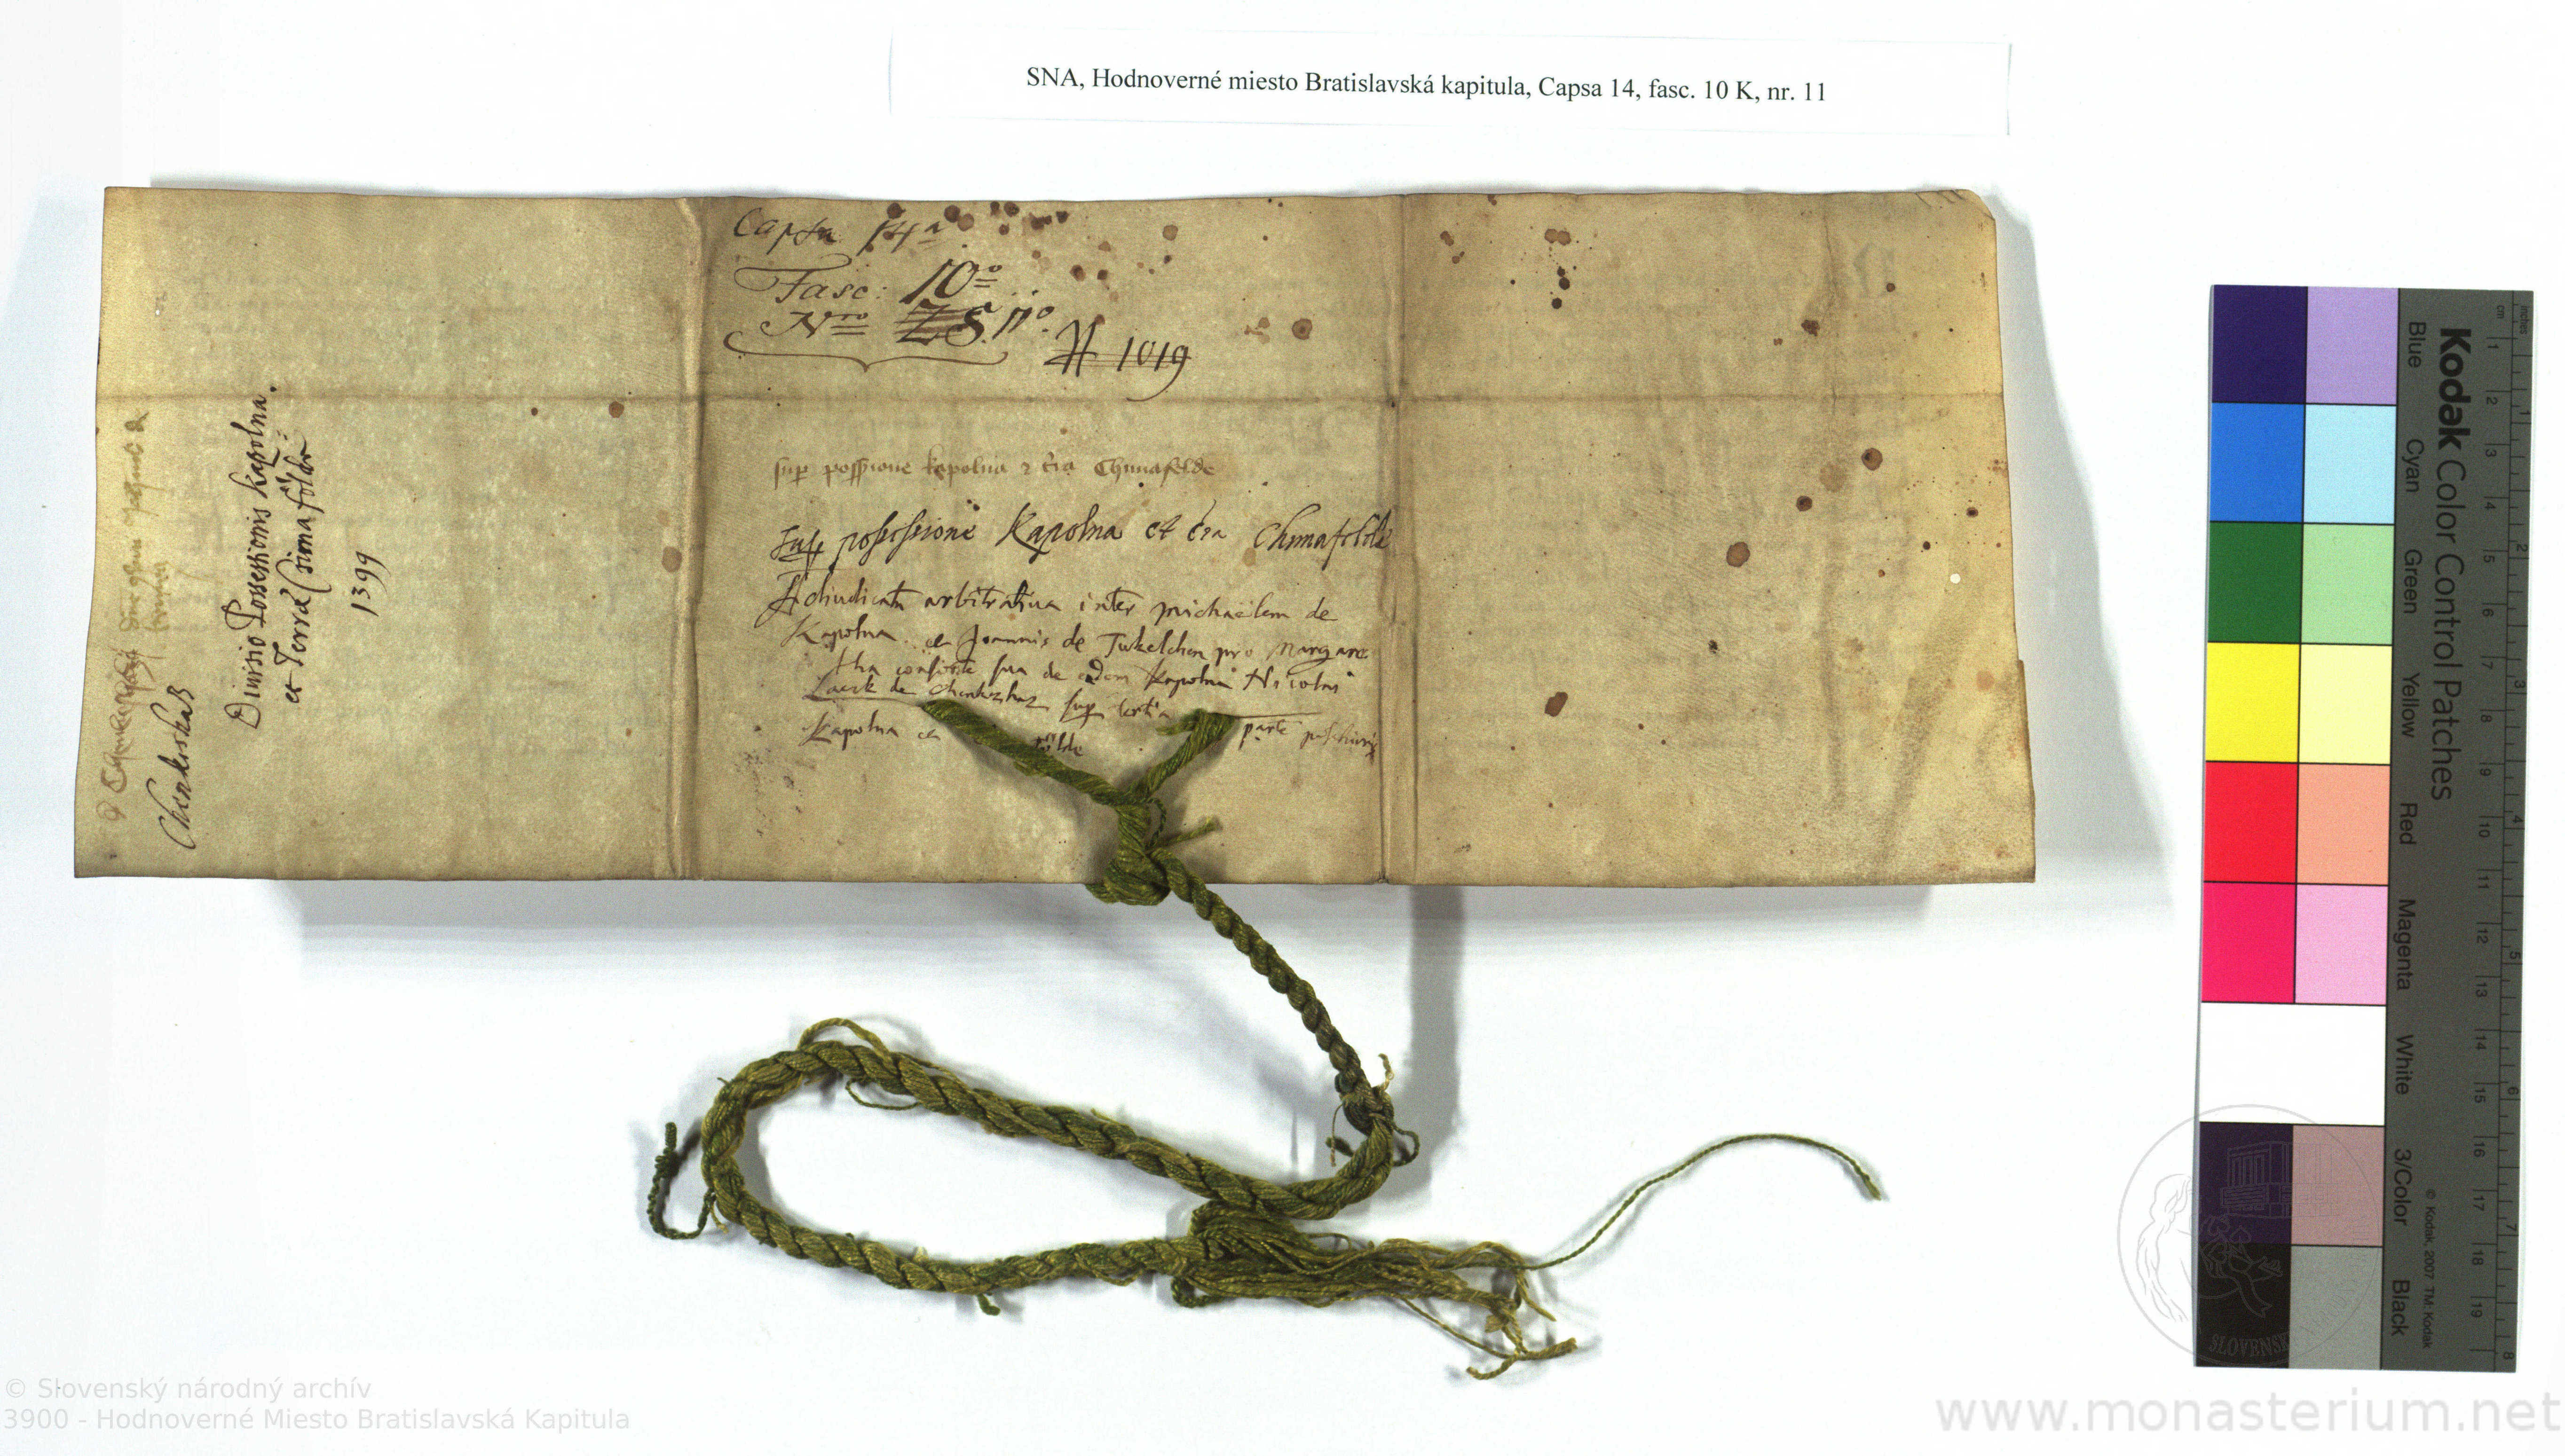 SNA, Hodnoverné miesto Bratislavská kapitula, Capsa 14, fasc. 10 K, nr. 11
Capsa 14ª
Fasc: 10º
Nro 11º.
# 1019
sup possessione kapolna et Chimafelde
Sup possessione Kapolna et Chimafelde
Adiudicatu arbitrativa inter Michaelem de
Kapolna et Joannis de Tukelchen pro Margare
tha consorte sua de eadem Kapolna Nicolai
Laczk de sup tertia
parte
Kapolna et földe
Divisio Possessionis Kapolna.
et Terrae Simaföldi
1399
© Slovenský národný archív
3900 - Hodnoverné Miesto Bratislavská Kapitula
www.monasterium.net
Kodak Color Control Patches
Blue Cyan Green Yellow Red Magenta White 3/Color Black
© Kodak, 2007 TM: Kodak
cm 1 2 3 4 5 6 7 8 9 10 11 12 13 14 15 16 17 18 19
inches 1 2 3 4 5 6 7 8